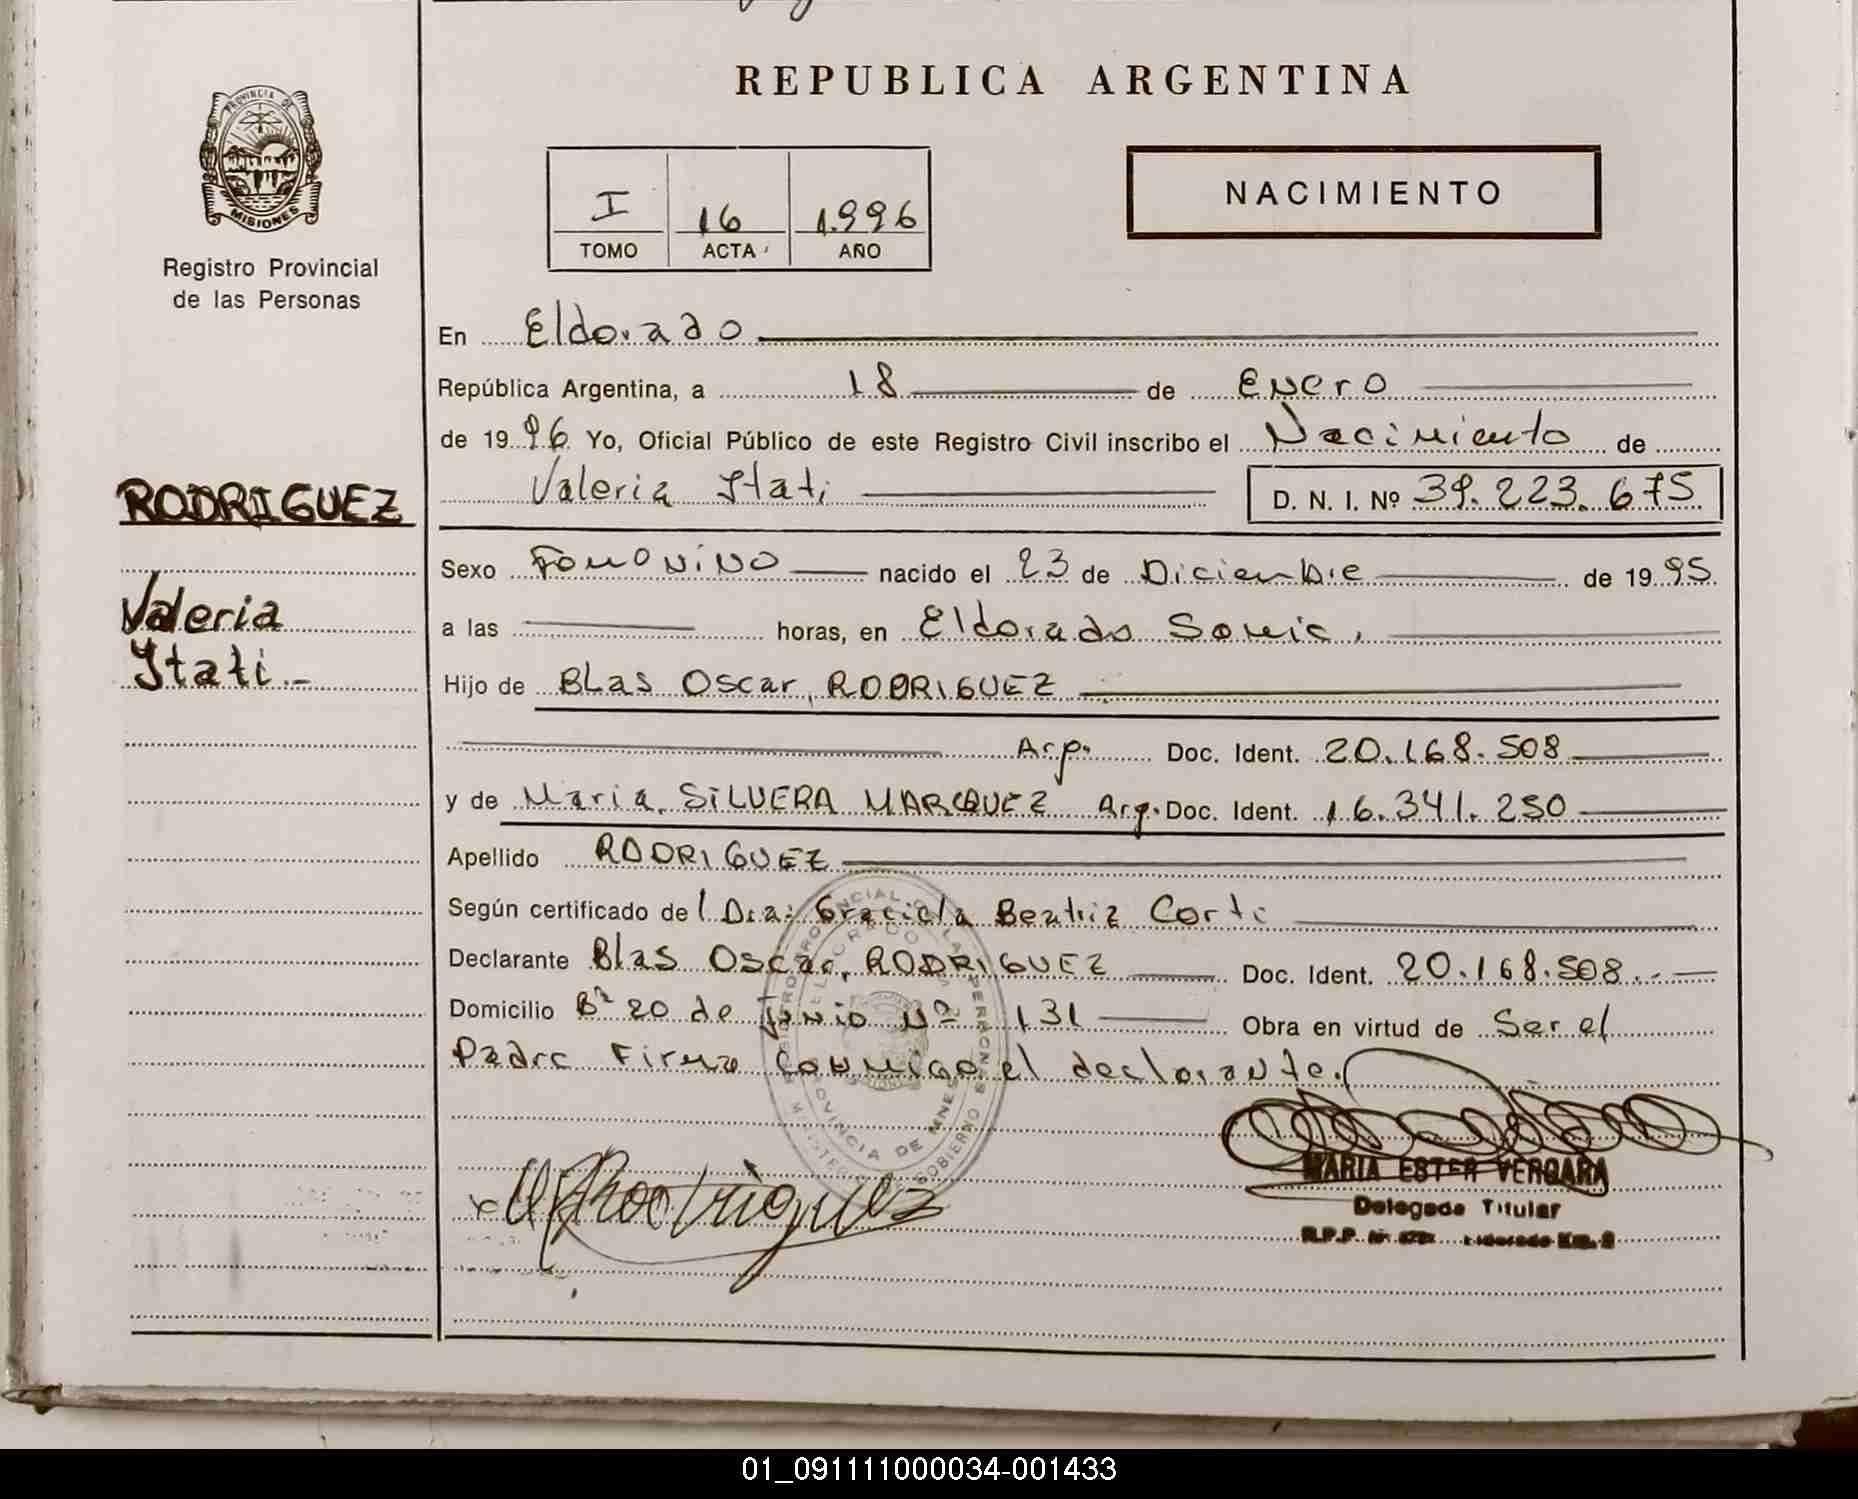 PROVINCIA DE
MISIONES
Registro Provincial
de las Personas
RODRIGUEZ
Valeria
Itati.-
REPUBLICA ARGENTINA
I 16 1.996
TOMO ACTA AÑO
NACIMIENTO
En Eldorado
República Argentina, a 18 de Enero
de 1996 Yo, Oficial Público de este Registro Civil inscribo el Nacimiento de
Valeria Itati D. N. I. Nº 39.223.675
Sexo Femenino nacido el 23 de Diciembre de 1995
a las horas, en Eldorado Samic.
Hijo de Blas Oscar RODRIGUEZ
Arg. Doc. Ident. 20.168.508
y de Maria SILVERA MARQUEZ Arg. Doc. Ident. 16.341.250
Apellido RODRIGUEZ
Según certificado de l Dra: Graciela Beatriz Corti
Declarante Blas Oscar RODRIGUEZ Doc. Ident. 20.168.508.-
Domicilio Bº 20 de Junio Nº 131 Obra en virtud de Ser el
Padre Firma conmigo el declarante.
Rodriguez
MARIA ESTER VERGARA
Delegada Titular
R.P.P. Eldorado Km. 9
01_091111000034-001433